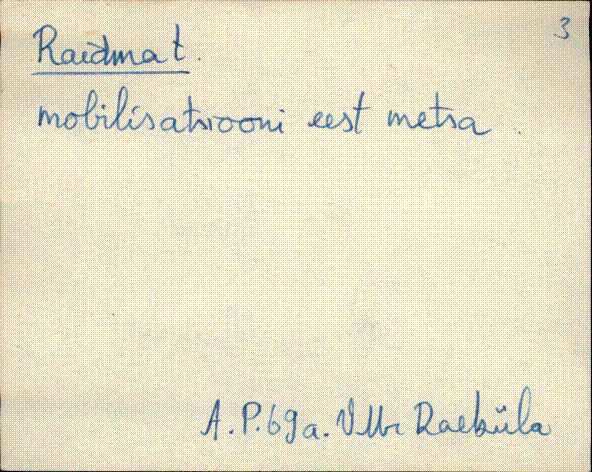 3
Raidmat.
mobilisatsiooni eest metsa.
A. P. 69a. Raeküla